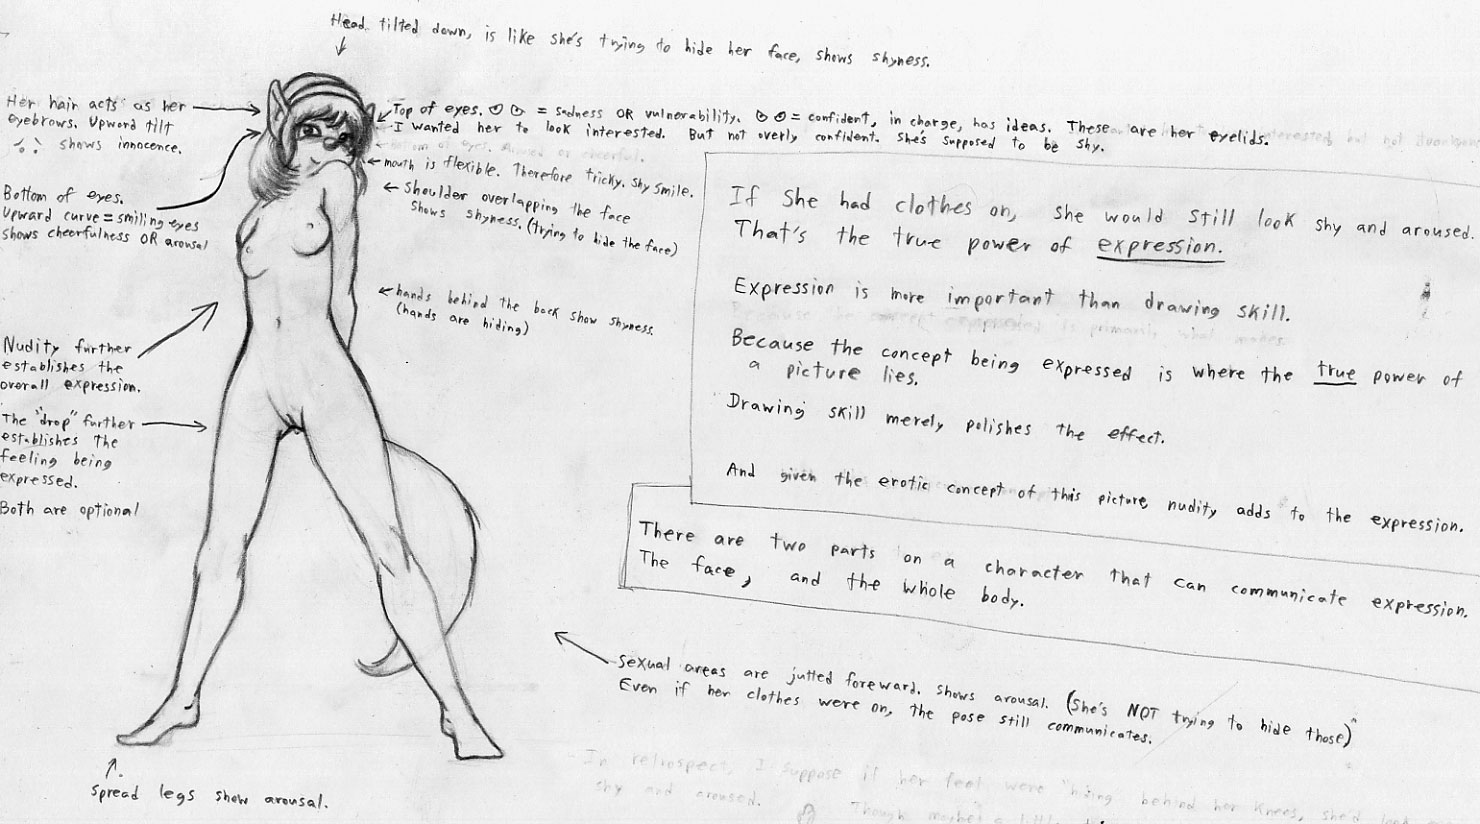 Head tilted down, is like she's trying to hide her face, shows shyness.
Her hair acts as her
eyebrows. Upward tilt
shows innocence.
Bottom of eyes.
Upward curve = smiling eyes
shows cheerfulness OR arousal
Nudity further
establishes the
overall expression.
The "drop" further
establishes the
feeling being
expressed.
Both are optional
Top of eyes. = sadness OR vulnerability. = confident, in charge, has ideas. These are her eyelids.
I wanted her to look interested. But not overly confident. She's supposed to be shy.
mouth is flexible. Therefore tricky. Shy smile.
Shoulder overlapping the face
shows shyness. (trying to hide the face)
hands behind the back show shyness.
(hands are hiding)
If She had clothes on, she would still look shy and aroused.
That's the true power of expression.
Expression is more important than drawing skill.
Because the concept being expressed is where the true power of
a picture lies.
Drawing skill merely polishes the effect.
And given the erotic concept of this picture, nudity adds to the expression.
There are two parts on a character that can communicate expression.
The face, and the whole body.
Sexual areas are jutted foreward. Shows arousal. (She's NOT trying to hide those)
Even if her clothes were on, the pose still communicates.
Spread legs show arousal.
In retrospect, I suppose if her feet were "hiding" behind her knees, she'd look
shy and aroused.
Though maybe a little